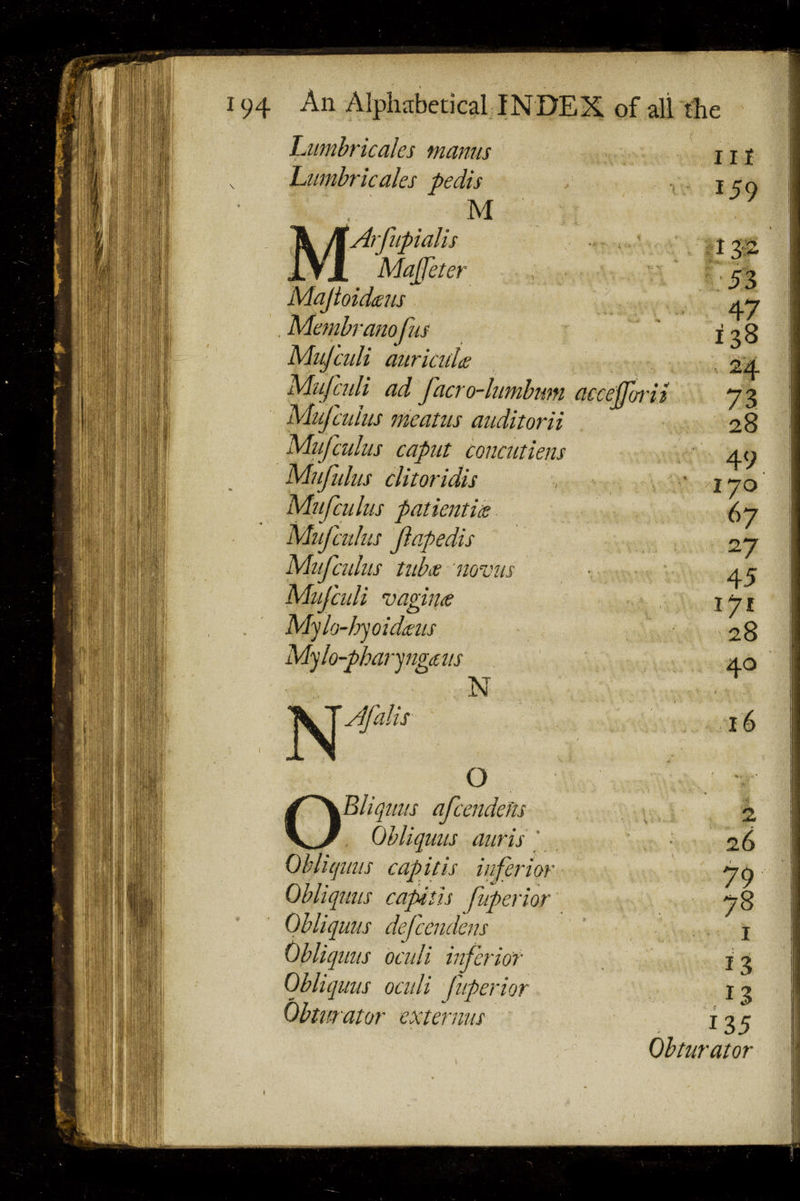 194 An Alphabetical INDEX of all the
Lumbricales manus 111
Lumbricales pedis 159
M
MArſupialis 132
Maſſeter 53
Maſtoidæus 47
Membranoſus 138
Muſculi auriculæ 24
Muſculi ad ſacro-lumbum acceſſorii 73
Muſculus meatus auditorii 28
Muſculus caput concutiens 49
Muſulus clitoridis 170
Muſculus patientiæ 67
Muſculus ſtapedis 27
Muſculus tubæ novus 45
Muſculi vaginæ 171
Mylo-hyoidæus 28
Mylo-pharyngæus 40
N
NAſalis 16
O
OBliquus aſcendens 2
Obliquus auris 26
Obliquus capitis inferior 79
Obliquus capitis ſuperior 78
Obliquus deſcendens 1
Obliquus oculi inferior 13
Obliquus oculi ſuperior 13
Obturator externus 135
Obturator